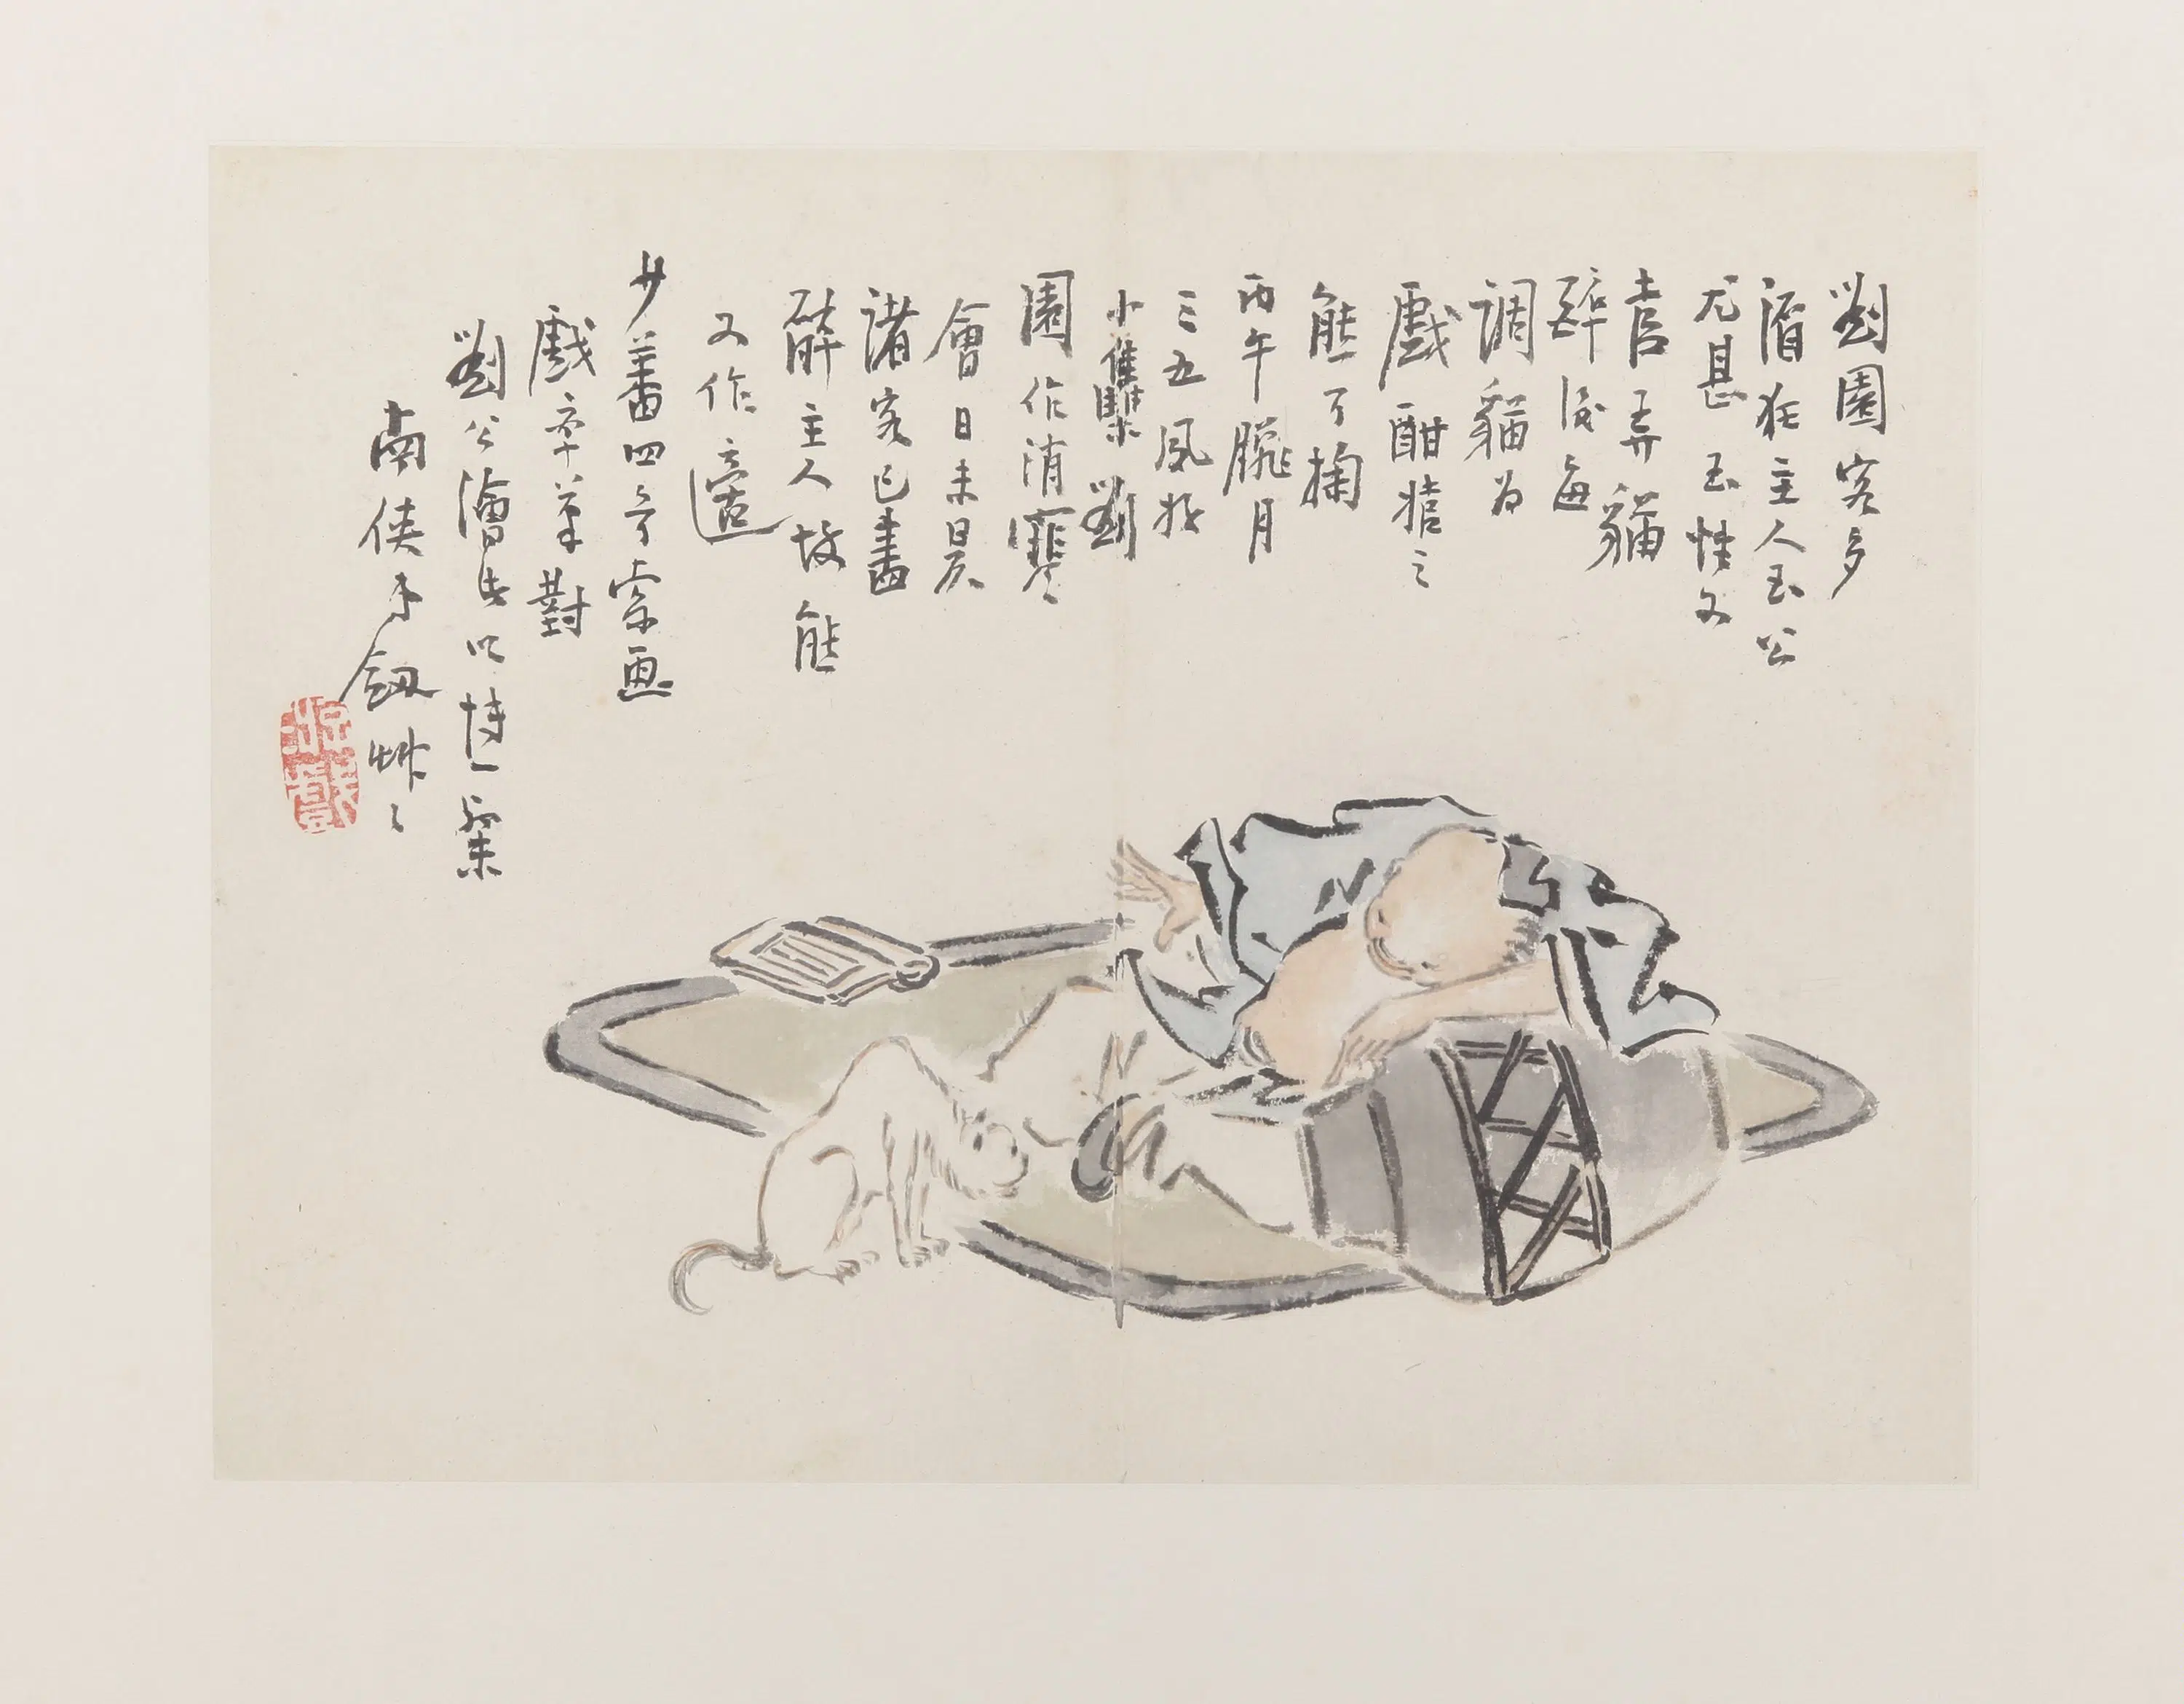 劉園客多
酒狂主人玉公
尤甚玉性又
喜弄貓
醉後每
調貓為
戲酣猿之
能可掬
丙午臘月
三五夙好
小集劉
園作消寒
會日未昃
諸客已盡
醉主人故能
又作適
少蕃四兄索畫
戲率筆對
劉公澮生以博一粲
南俠弟劍